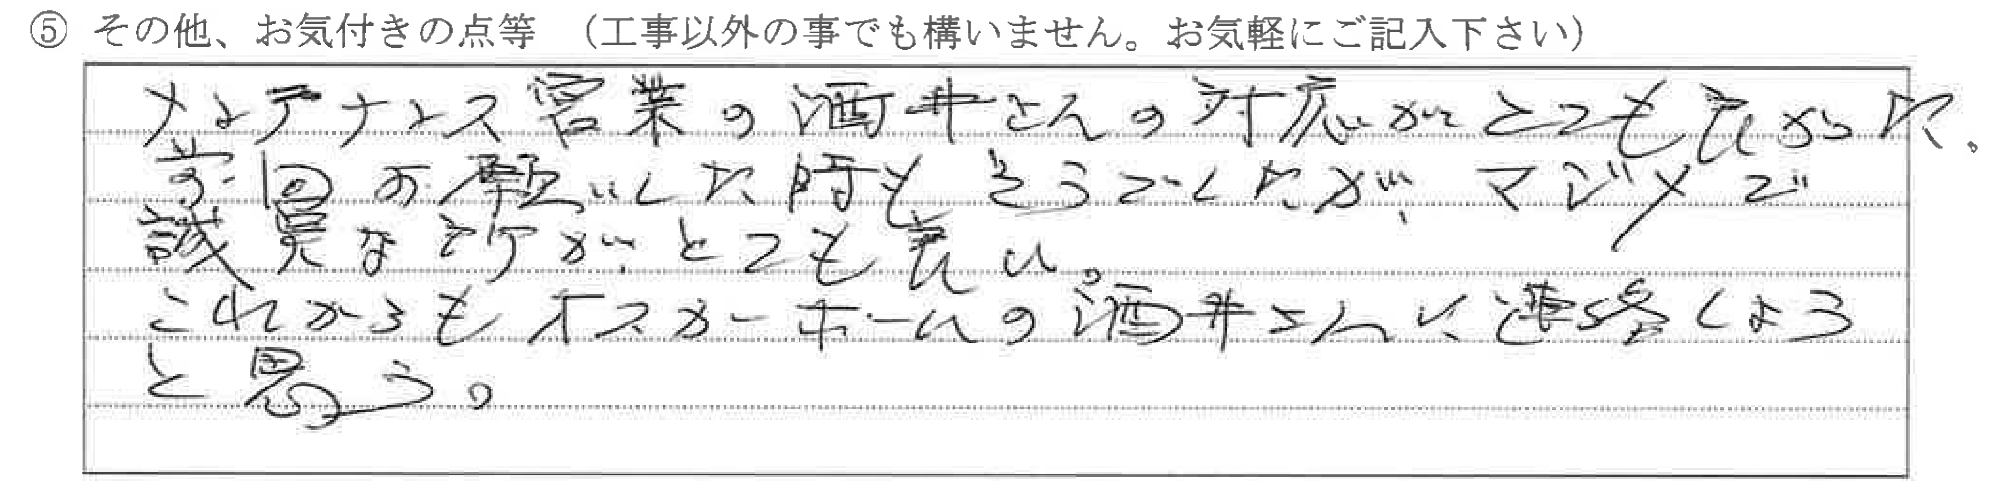 ⑤ その他、お気付きの点等 （工事以外の事でも構いません。お気軽にご記入下さい）
メンテナンス営業の酒井さんの対応がとても良かった。
前回お願いした時もそうでしたが、マジメで
誠実な所がとても良い。
これからもオスカーホームの酒井さんに連絡しよう
と思う。